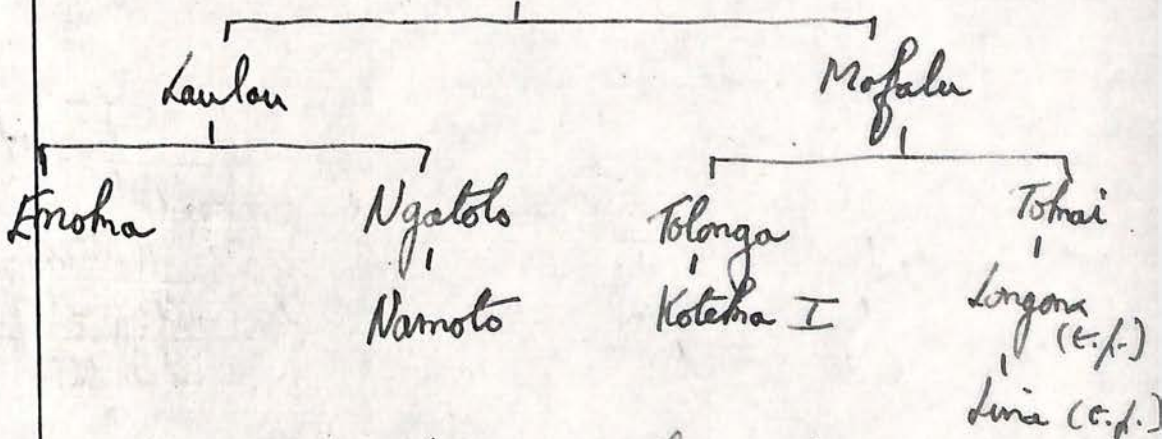 Laulau Mofalu
Ngatolo Tolonga Tohai
Namoto Kotekha I Longona
(t.f.)
Lina (t.f.)